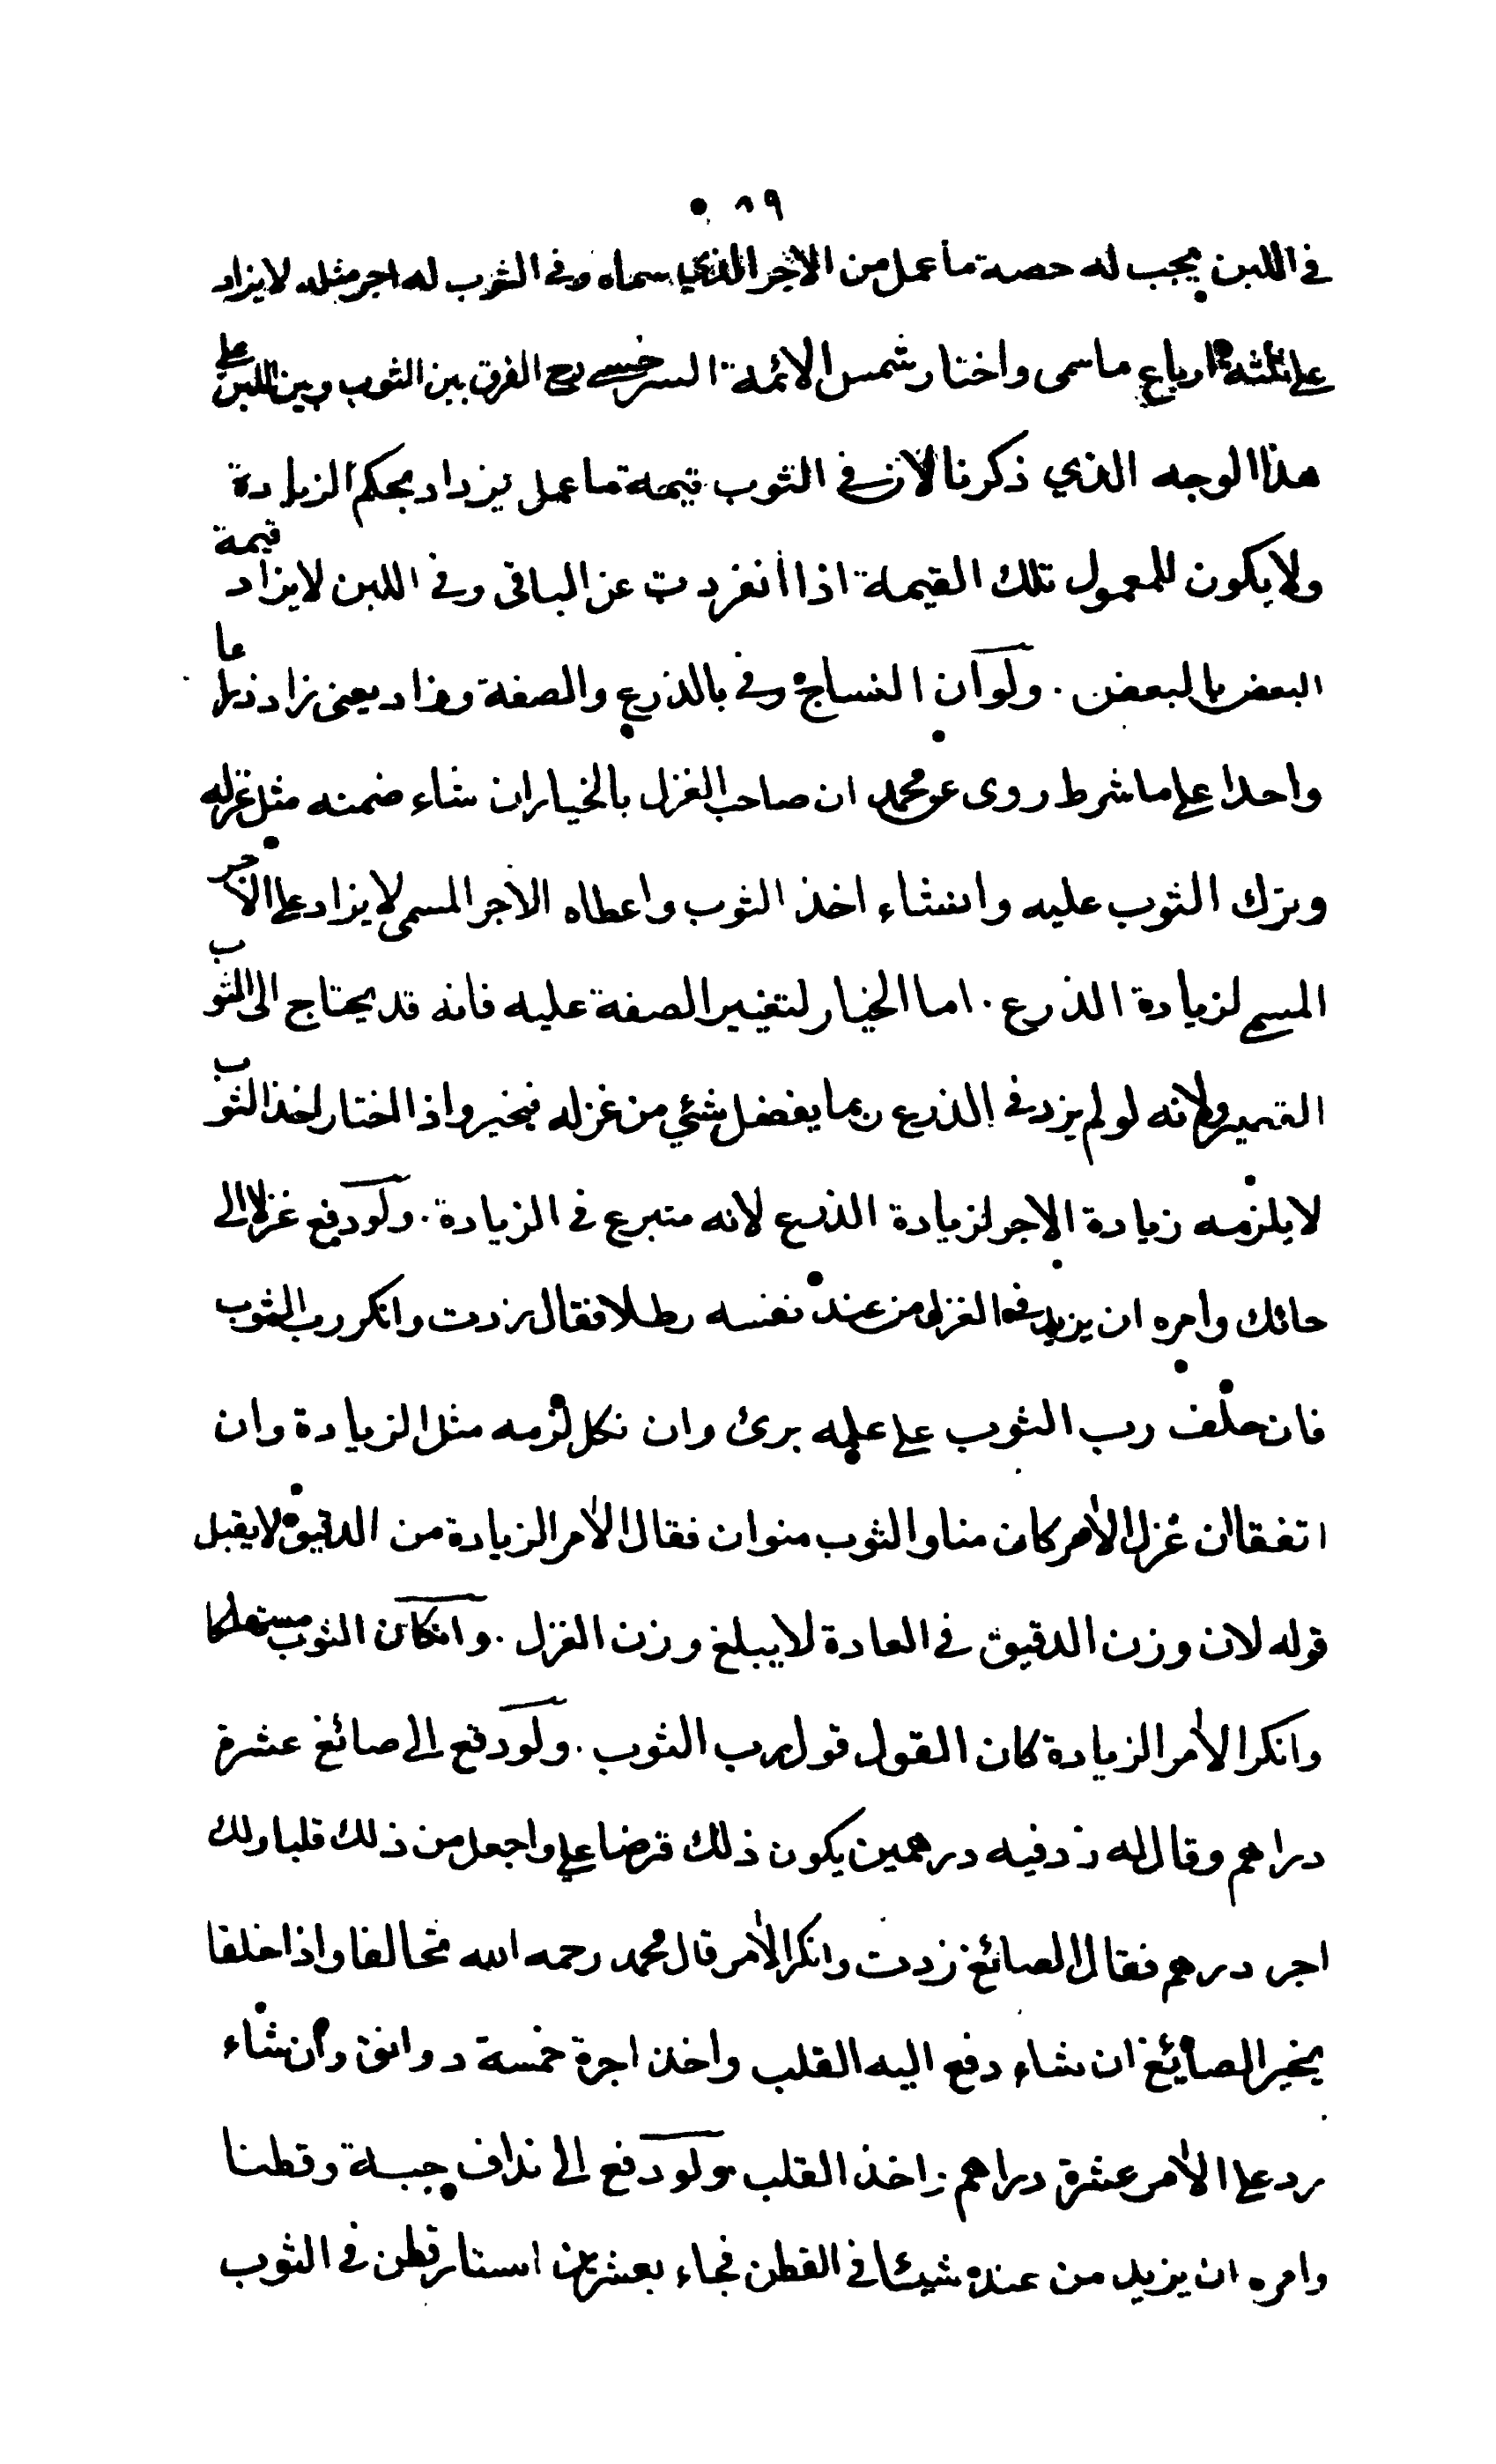 ٨٩
في اللبن يجب له حصة ما عمل من الاجر الذي سماه وفي الثوب له اجر مثله لا يزاد
على ثلثة ارباع ما سمى واختار شمس الائمة السرخسي رح الفرق بين الثوب وبين اللبن على
هذا الوجه الذي ذكرنا لان في الثوب قيمة ما عمل يزداد بحكم الزيادة
ولا يكون للمعمول تلك القيمة اذا انفردت عن الباقي وفي اللبن لا يزاد قيمة
البعض بالبعض . ولو ان النساج وفي بالذرع والصفة وزاد يعني زاد ذراعا
واحدا على ما شرط روى عن محمد ان صاحب الغزل بالخيار ان شاء ضمنه مثل غزله
وترك الثوب عليه وان شاء اخذ الثوب واعطاه الاجر المسمى لا يزاد على الاجر
المسمى لزيادة الذرع . اما الخيار لتغيير الصفة عليه فانه قد يحتاج الى الثوب
القصير ولانه لو لم يزد في الذرع ربما يفضل شئ من غزله فيخير واذا اختار اخذ الثوب
لا يلزمه زيادة الاجر لزيادة الذرع لانه متبرع في الزيادة . ولو دفع غزلا الى
حائك وامره ان يزيد في الغزل من عند نفسه رطلا فقال زدت وانكر رب الثوب
فان حلف رب الثوب على علمه برئ وان نكل لزمه مثل الزيادة وان
اتفقا ان غزل الآمر كان منا والثوب منوان فقال الآمر الزيادة من الدقيق لا يقبل
قوله لان وزن الدقيق في العادة لا يبلغ وزن الغزل . وان كان الثوب مستهلكا
وانكر الآمر الزيادة كان القول قول رب الثوب . ولو دفع الى صائغ عشرة
دراهم وقال له زد فيه درهمين يكون ذلك قرضا علي واجعل من ذلك قلبا ولك
اجر درهم فقال الصائغ زدت وانكر الآمر قال محمد رحمه الله تحالفا واذا حلفا
يخير الصائغ ان شاء دفع اليه القلب واخذ اجرة خمسة دوانق وان شاء
رد على الآمر عشرة دراهم واخذ القلب ولو دفع الى نداف جبة وقطنا
وامره ان يزيد من عنده شيئا في القطن فجاء بعشرين استار قطن في الثوب